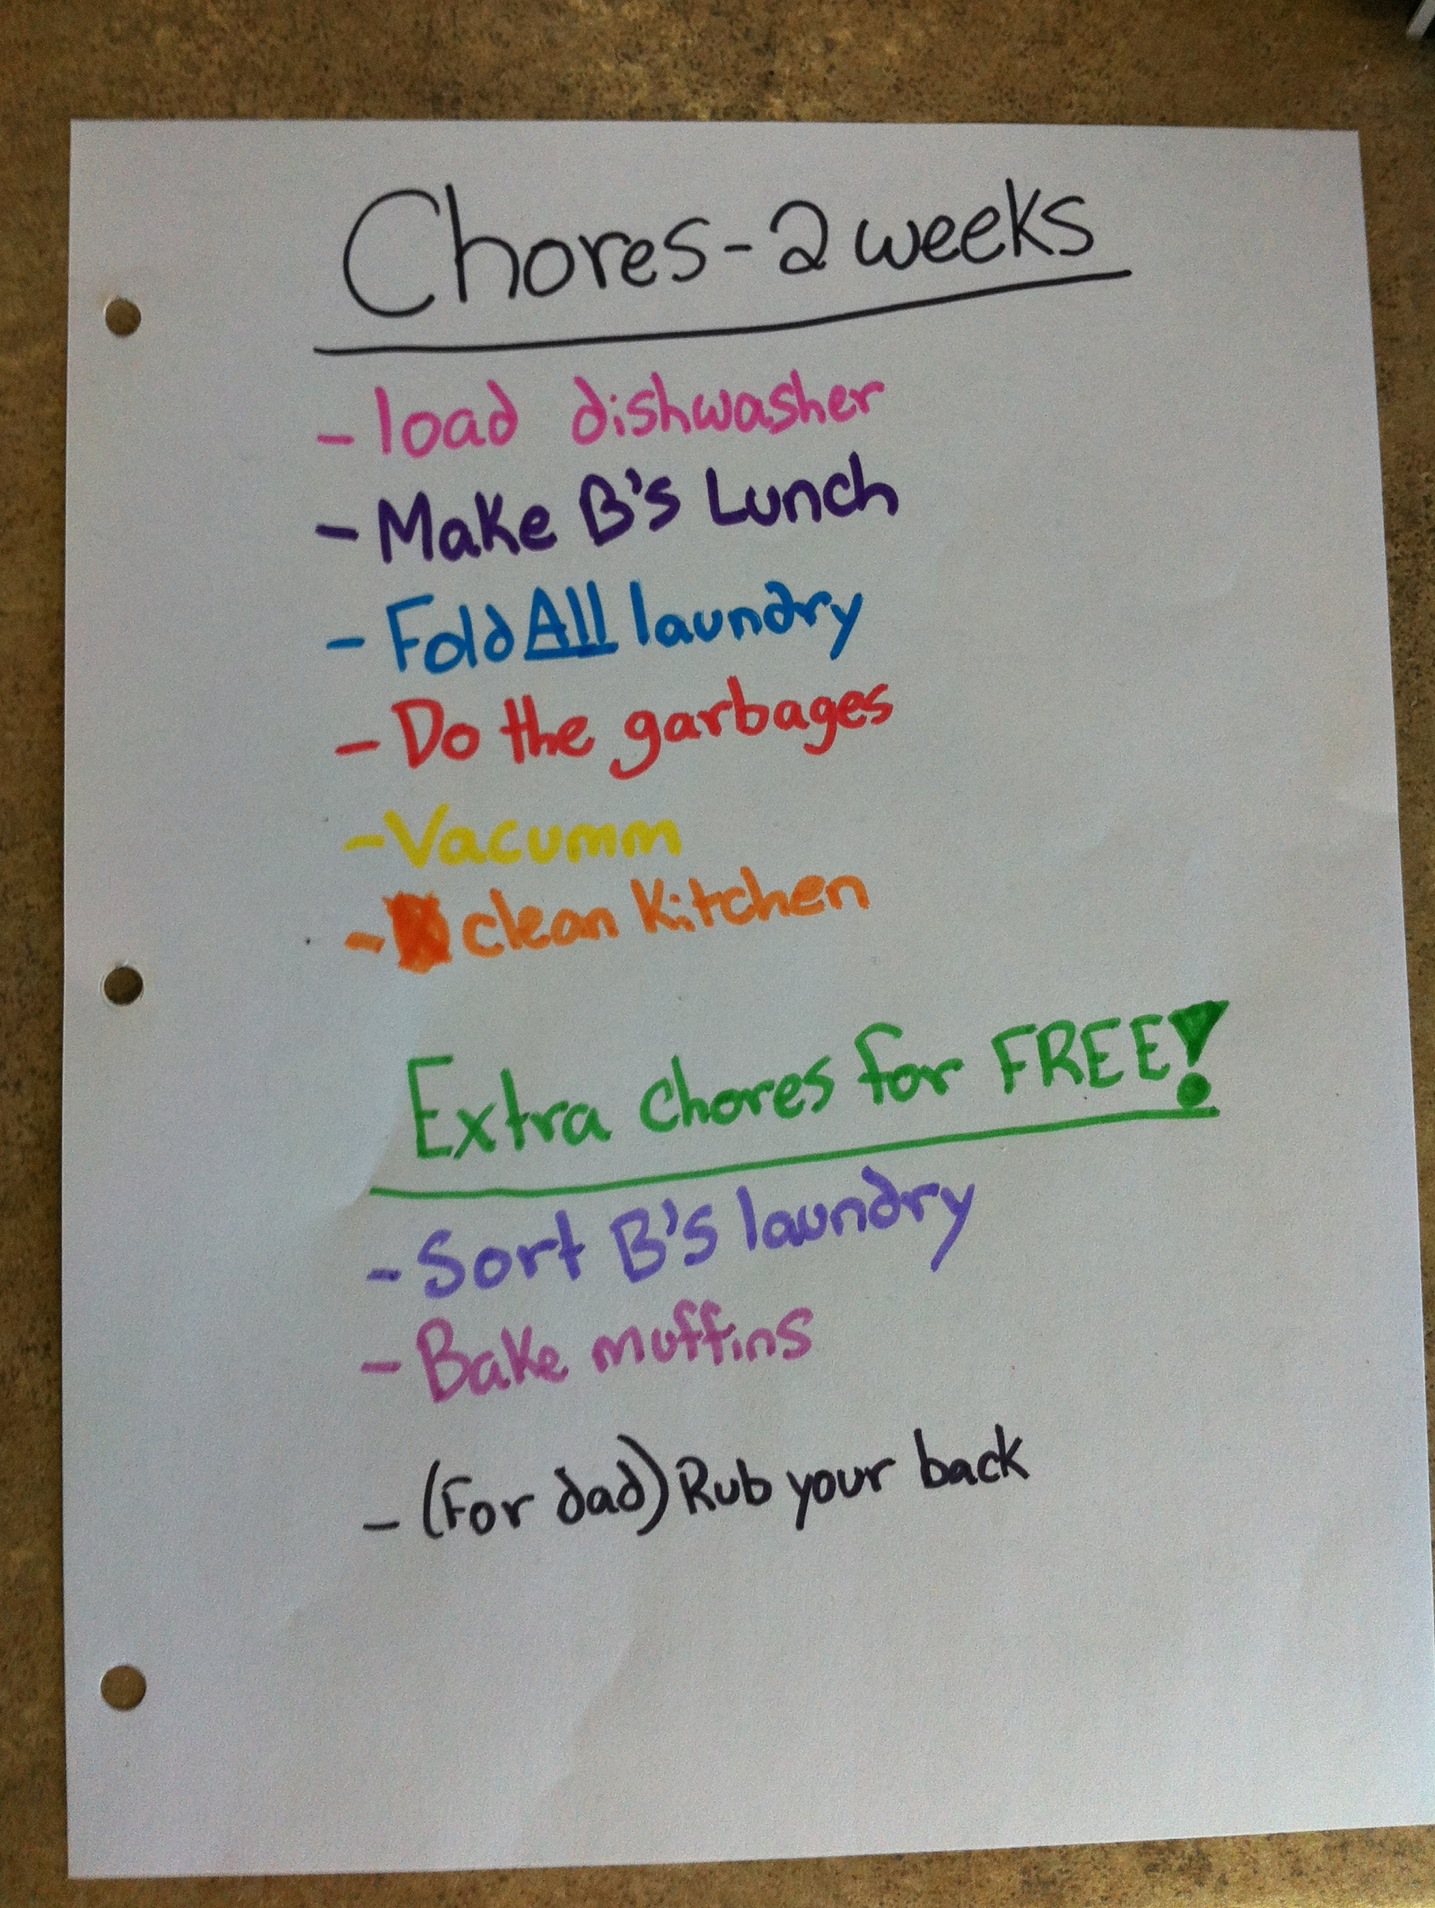 Chores - 2 weeks
- load dishwasher
- Make B's Lunch
- Fold All laundry
- Do the garbages
- Vacumm
- clean Kitchen
Extra chores for FREE!
- Sort B's laundry
- Bake muffins
- (For dad) Rub your back